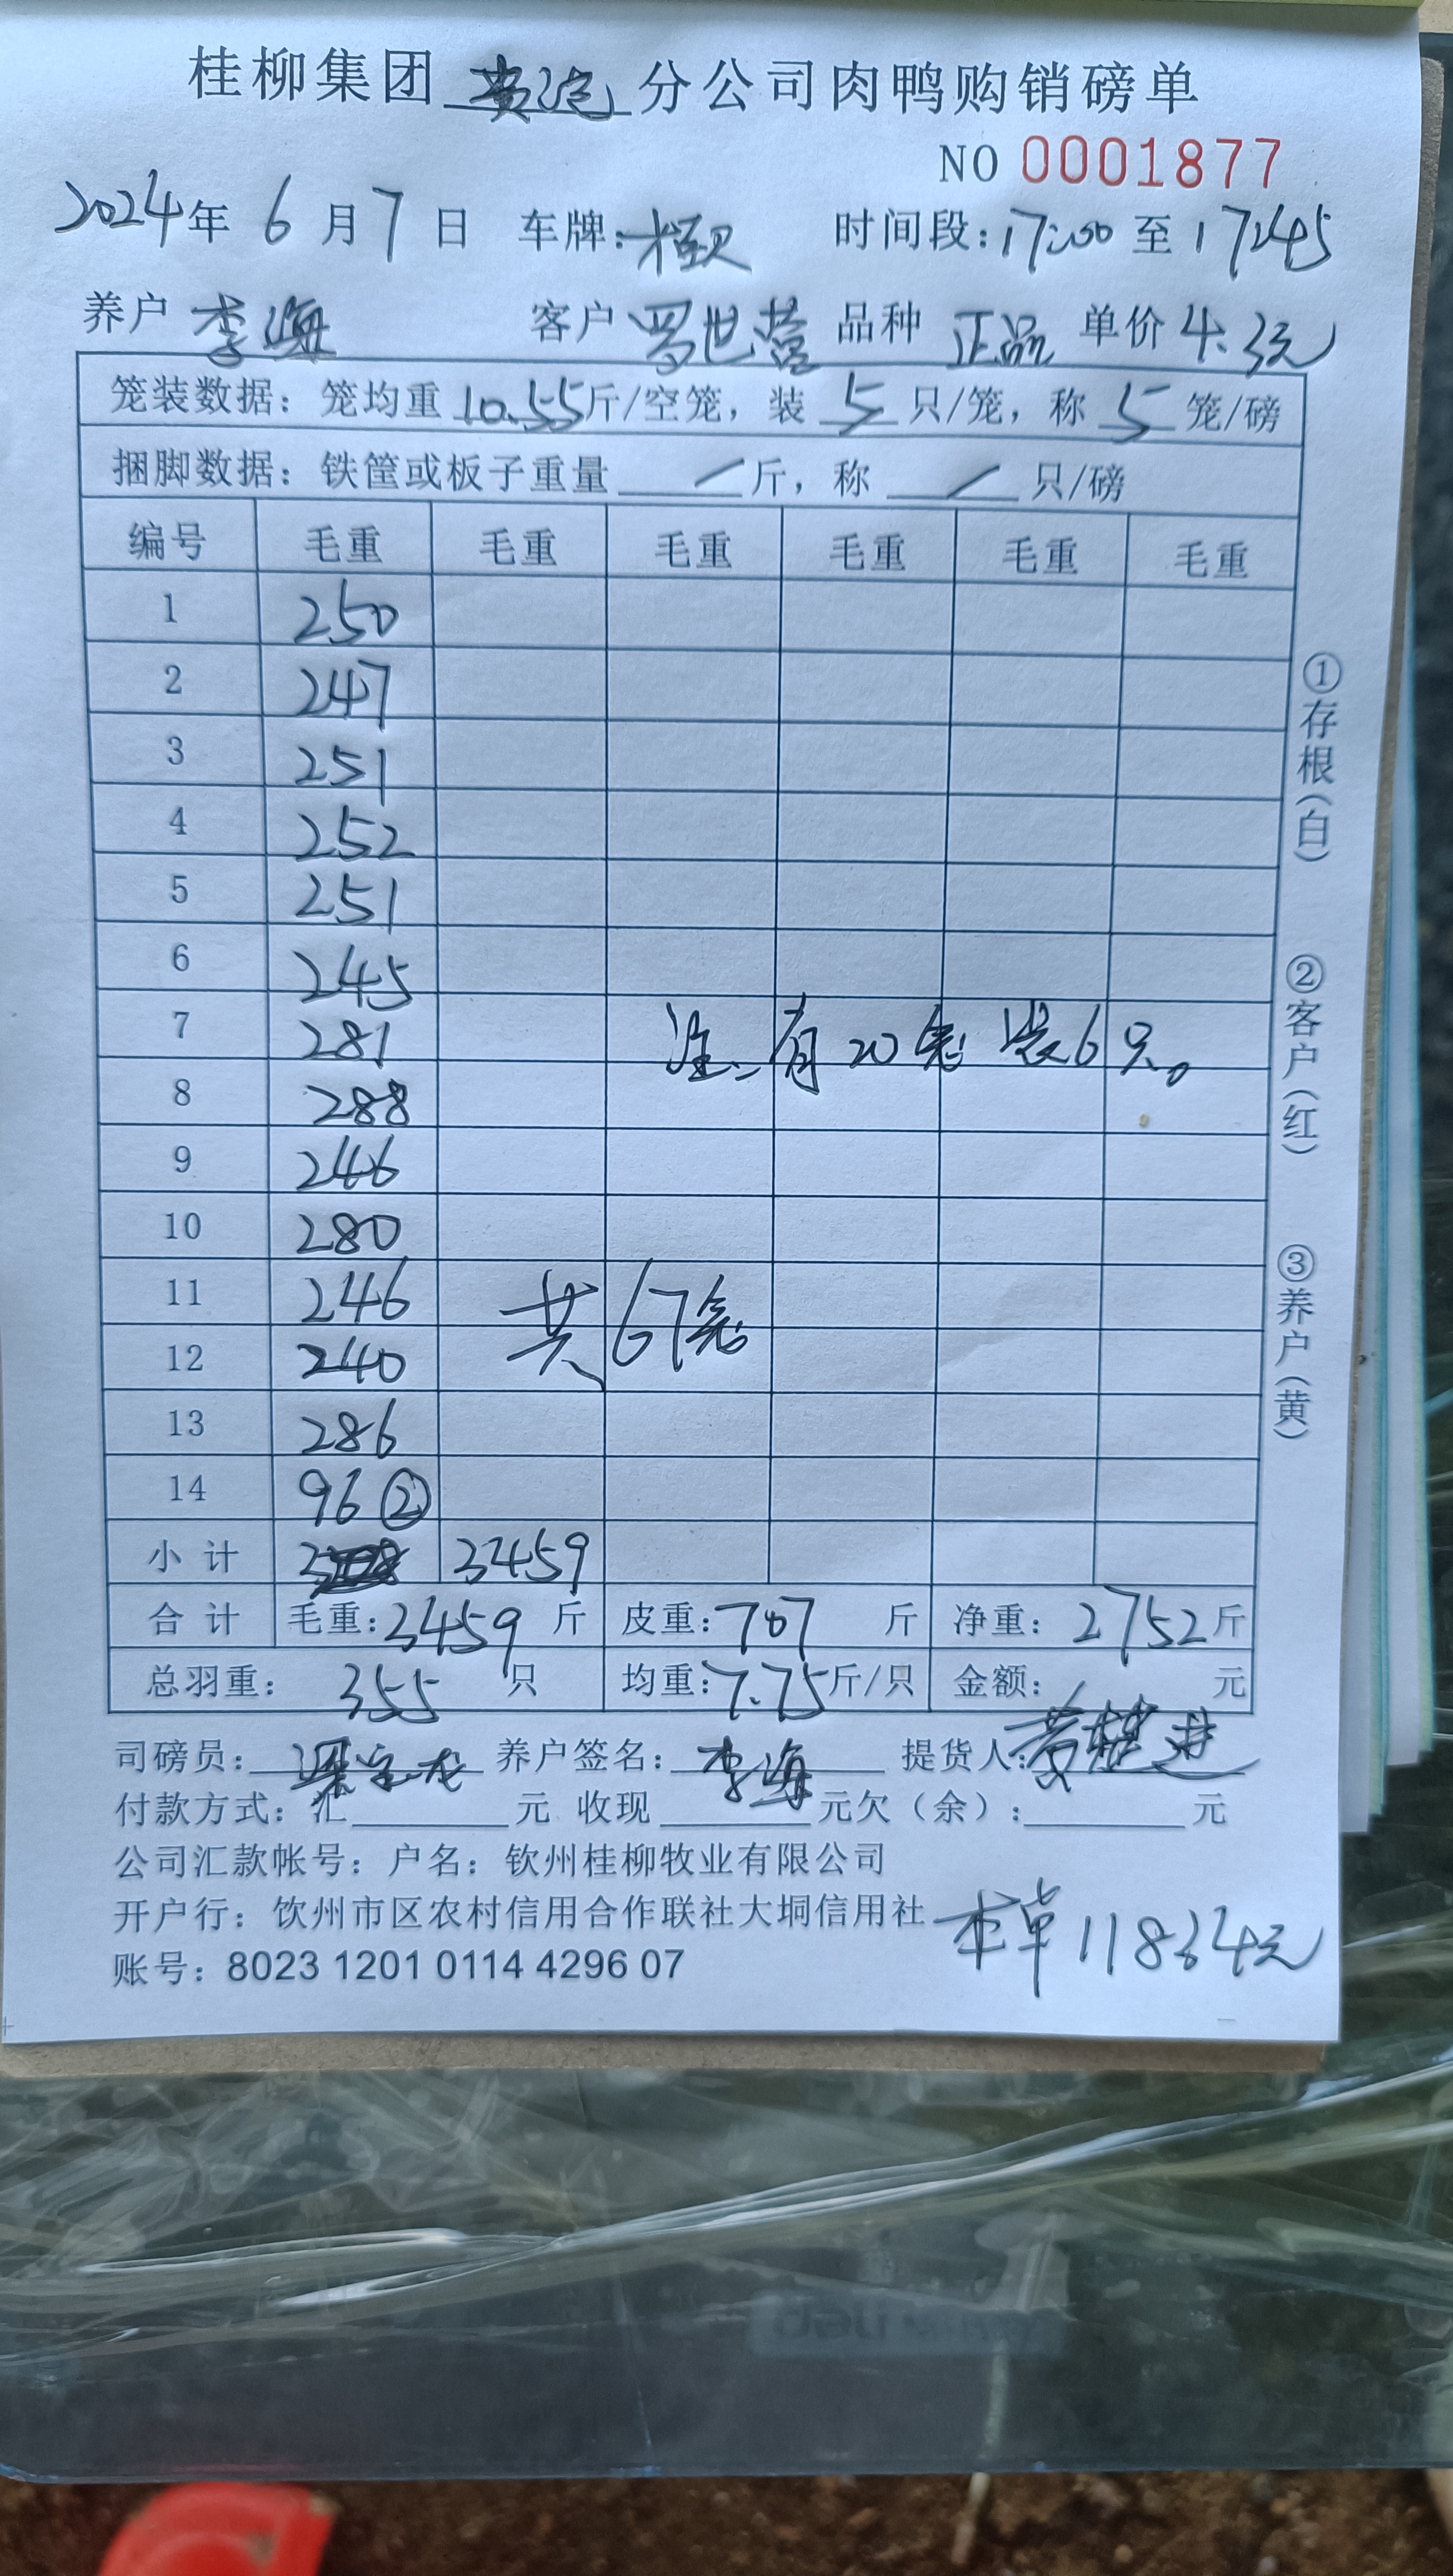 桂柳集团 分公司肉鸭购销磅单
NO 0001877
2024年 6 月 7 日 车牌: 时间段:17:00 至 17:45
养户 李海 客户 罗世营 品种 正品 单价 4.3元
笼装数据: 笼均重 10.55斤/空笼, 装 5 只/笼, 称 5 笼/磅
捆脚数据: 铁筐或板子重量 / 斤, 称 / 只/磅
编号 毛重 毛重 毛重 毛重 毛重 毛重
1 250
2 247
3 251
4 252
5 251
6 245
7 281 注: 有20笼装6只。
8 288
9 246
10 280
11 246
12 240 共67笼
13 286
14 96②
小 计 3459
合 计 毛重:3459 斤 皮重:707 斤 净重: 2752斤
总羽重: 355 只 均重:7.75斤/只 金额: 元
司磅员: 梁宝龙 养户签名: 李海 提货人:
付款方式: 汇 元 收现 元欠(余): 元
公司汇款帐号: 户名: 钦州桂柳牧业有限公司
开户行: 饮州市区农村信用合作联社大垌信用社
本单11834元
账号: 8023 1201 0114 4296 07
①存根(白)
②客户(红)
③养户(黄)